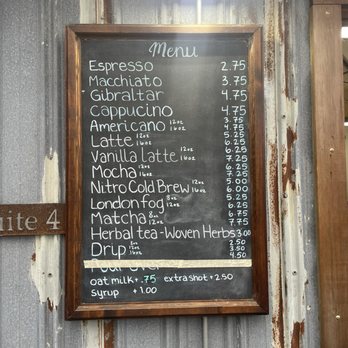 Menu
Espresso 2.75
Macchiato 3.75
Gibraltar 4.75
Cappucino 4.75
Americano 12oz 3.75
16oz 4.75
Latte 12oz 5.25
16oz 6.25
Vanilla latte 12oz 6.25
16oz 7.25
Mocha 12oz 6.25
16oz 7.25
Nitro Cold Brew 12oz 5.00
16oz 6.00
London fog 8oz 5.25
12oz 6.25
Matcha 8oz 6.75
12oz 7.75
Herbal tea - Woven Herbs 3.00
Drip 8oz 2.50
12oz 3.50
16oz 4.50
Pour Over
oat milk + .75 extra shot + 2.50
syrup + 1.00
uite 4